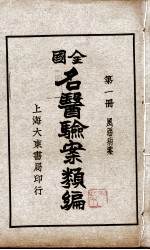 第一冊 風淫病案
全國
名醫驗案類編
上海大東書局印行